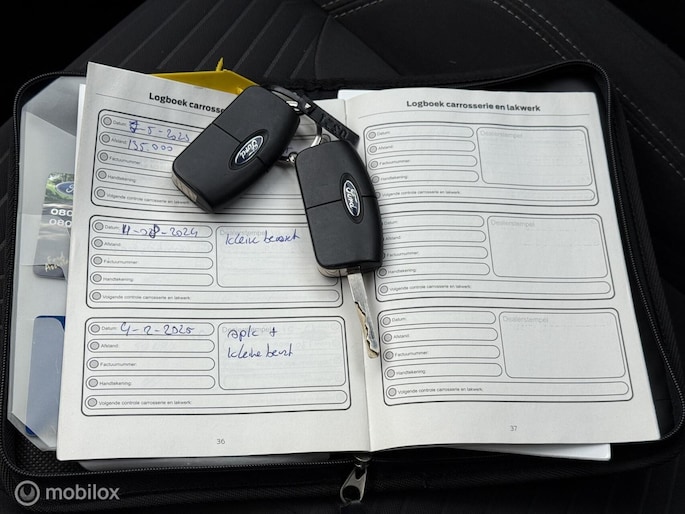 Logboek carrosserie
Datum: 7-5-2023
Afstand: 135000
Factuurnummer:
Handtekening:
Volgende controle carrosserie en lakwerk:
Datum: 11-08-2024
Dealerstempel
kleine beurt
Afstand:
Factuurnummer:
Handtekening:
Volgende controle carrosserie en lakwerk:
Datum: 4-2-2025
apk +
kleine beurt
Afstand:
Factuurnummer:
Handtekening:
Volgende controle carrosserie en lakwerk:
36
Logboek carrosserie en lakwerk
Datum:
Dealerstempel
Afstand:
Factuurnummer:
Handtekening:
Volgende controle carrosserie en lakwerk:
Datum:
Dealerstempel
Afstand:
Factuurnummer:
Handtekening:
Volgende controle carrosserie en lakwerk:
Datum:
Dealerstempel
Afstand:
Factuurnummer:
Handtekening:
Volgende controle carrosserie en lakwerk:
37
Ford
Ford
080
080
mobilox